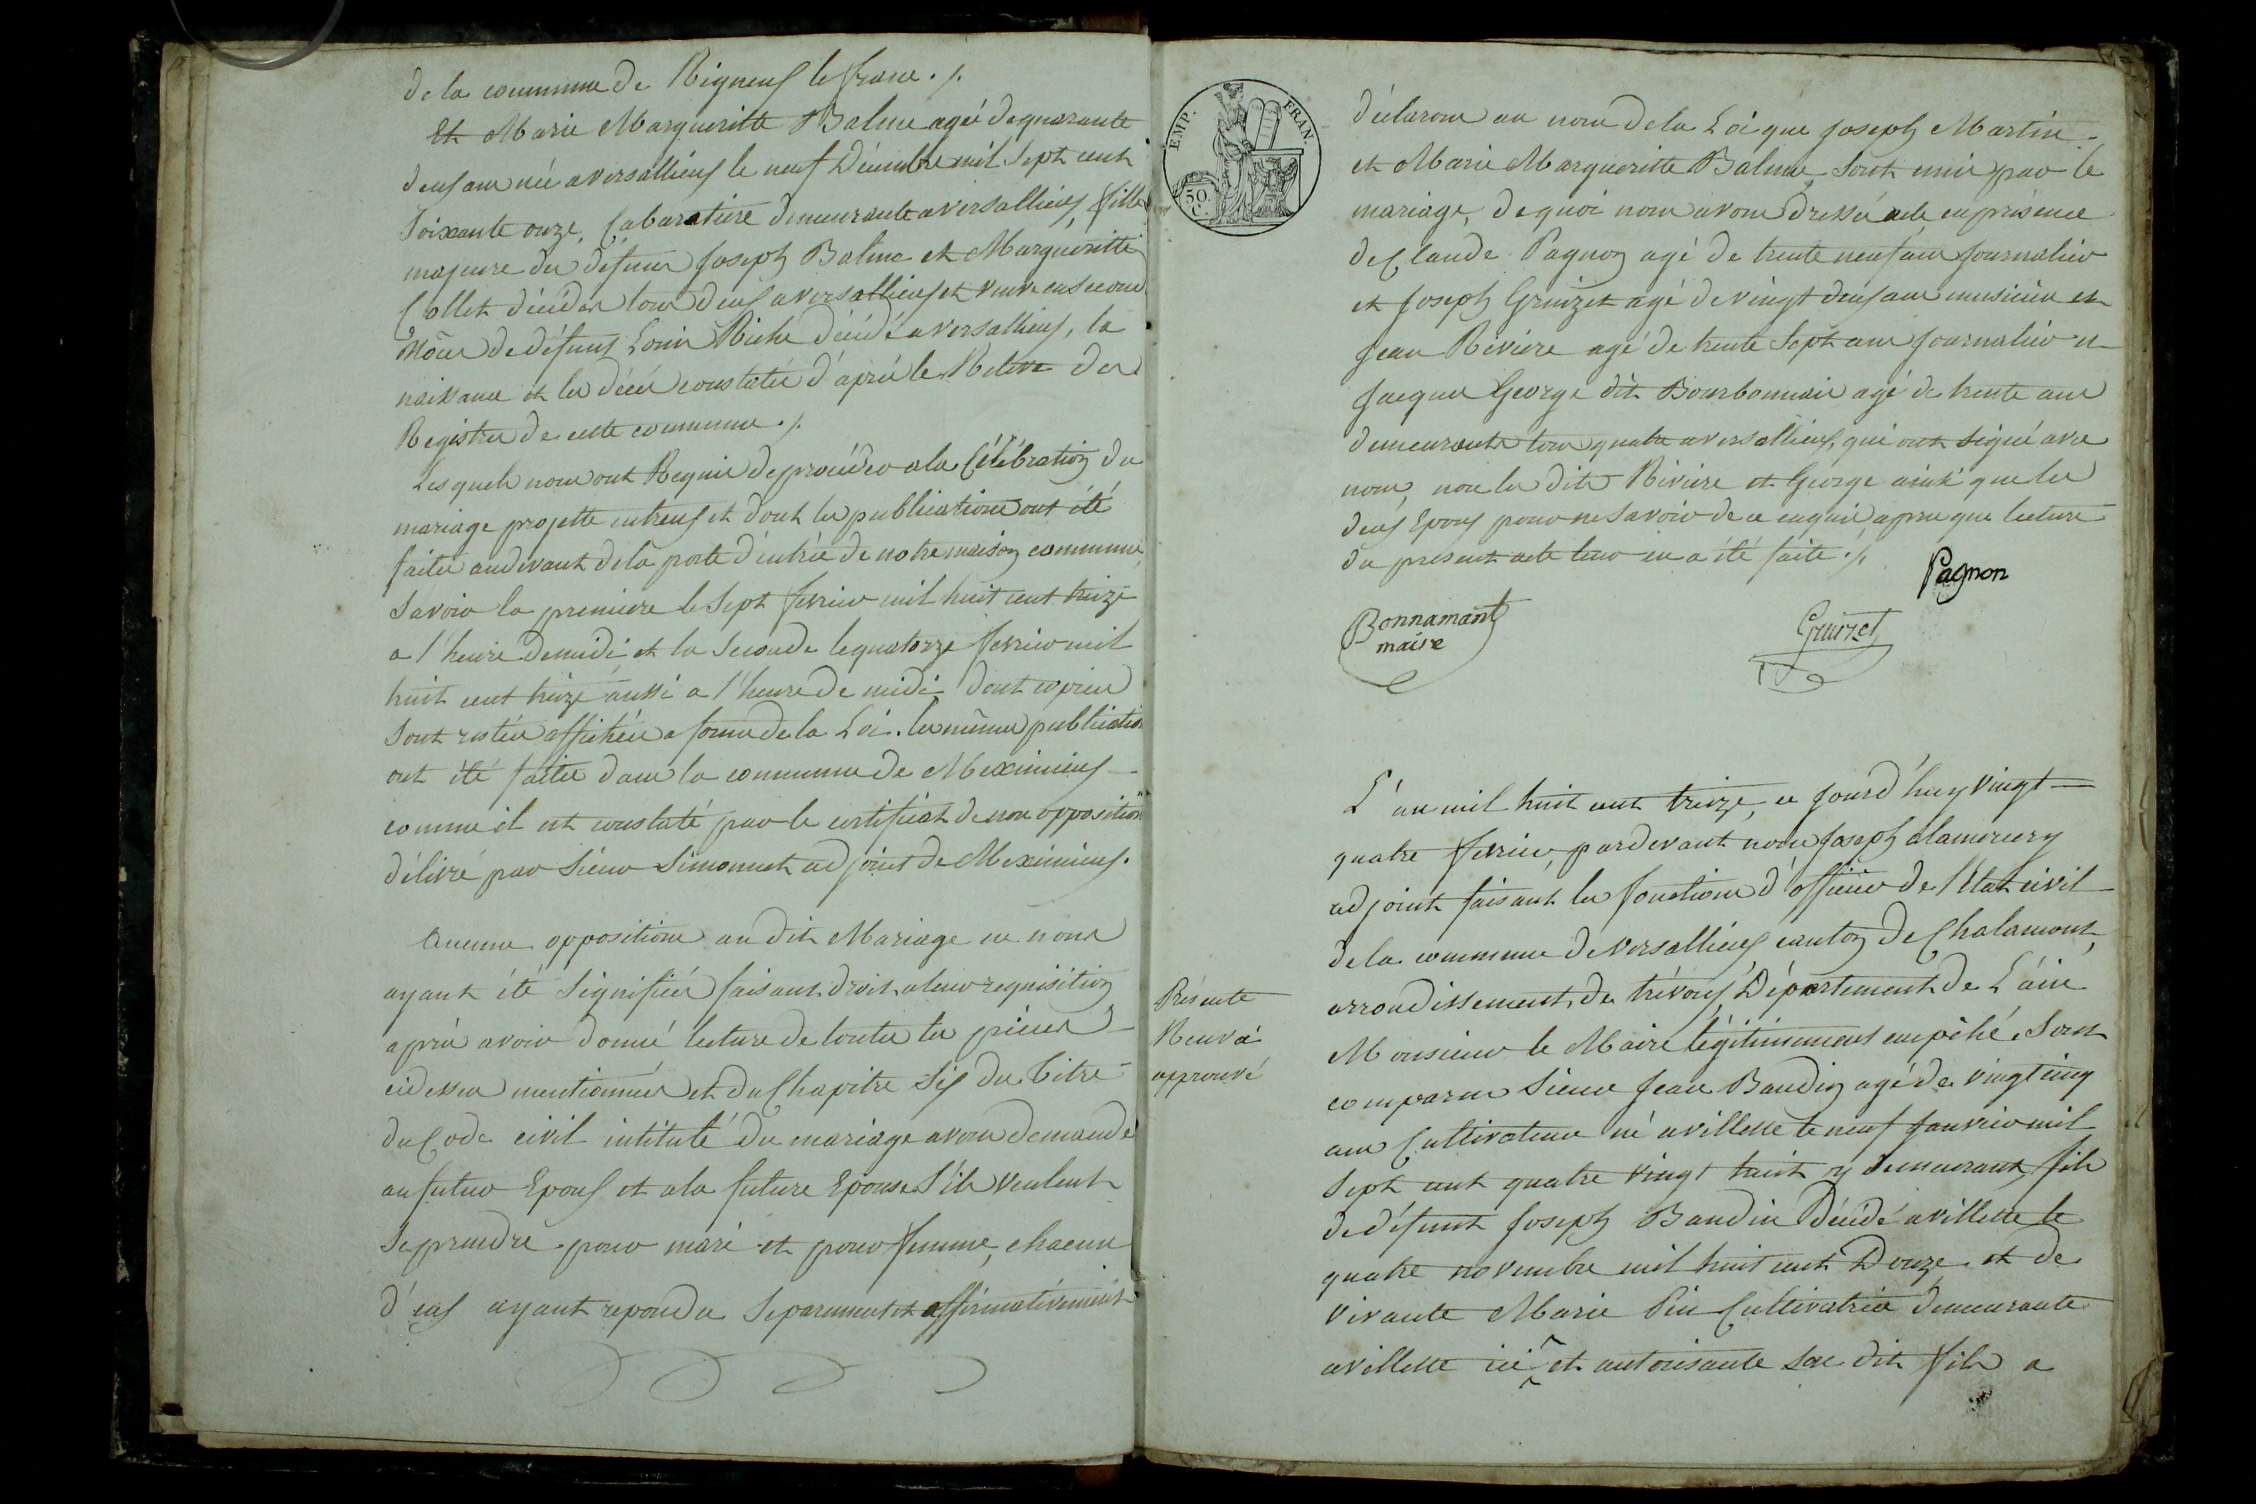 de la commune de Rigneux le franc ./.
Et Marie Margueritte Balme agée de quarante
deux ans née a versallieux le neuf Décembre mil Sept cent
Soixante onze, Cabaratiere demeurante a versallieux, fille
majeure des défunts Joseph Balme et Marguéritte
Collet décédés tous deux a versallieux et veuve en second
nôces de défunt Louis Riche décédé a versallieux, la
naissance et les décés constatés d'après le Releve des
Registres de cette commune ./.
Lesquels nous ont Requis de procéder a la Célébration du
mariage projetté entreux et dont les publications ont été
faites au devant de la porte d'entrée de notre maison commune,
Savoir la premiere le Sept fevrier mil huit cent treize
a l'heure de midi, et la Seconde le quatorze fevrier mil
huit cent treize aussi a l'heure de midi, dont copies
Sont restées affichées a forme de la Loi. les mêmes publication
ont été faites dans la commune de Meximieux
comme il est constaté par le certificat de non opposition
délivré par Sieur Simonnet adjoint de Meximieux.
Aucunes oppositions au dit Mariage ne nous
ayant été Signifiées faisant droit a leur requisition
après avoir donné lecture de toutes les pièces
cidessus mentionnées et du Chapitre Six du titre
du Code civil intitulé du mariage avons demandé
au futur Epoux et a la future Epouse S'ils veulent
Se prendre pour mari et pour femme, chacun
d'eux ayant repondu Séparement et affirmativement
EMP. FRAN.
50. C.
déclarons au nom de la Loi que Joseph Martin
et Marie Marguéritte Balme, Sont unis par le
mariage, de quoi nous avons dressé acte en présence
de Claude Pagnon agé de trente neuf ans journalier
et Joseph Gruizet agé de vingt deux ans musicien et
Jean Riviere agé de trente Sept ans journalier et
Jacques George dit Bourbonnais agé de trente ans
demeurants tous quatre a versallieux, qui ont signé avec
nous, non les dits Riviere et George ainsi que les
deux Epoux pour ne Savoir de ce enquis apres que lecture
du présent acte leur en a été faite ./.
Pagnon
Bonnamant
maire
Gruizet
L'an mil huit cent treize, ce jourd'huy vingt
quatre fevrier, pardevant nous Joseph alamercery
adjoint faisant les fonctions d'officier de l'Etat civil
de la commune de versallieux, canton de Chalamont,
arrondissement de trévoux, Département de L'ain
Monsieur le Maire légitimement empêché. Sont
comparus Sieur Jean Baudin agé de vingt cinq
ans Cultivateur né a villette le neuf janvier mil
Sept cent quatre vingt huit y demeurant, fils
de défunt Joseph Baudin Décédé a villette le
quatre novembre mil huit cent Douze et de
vivante Marie Pin Cultivatrice demeurante
a villette ici et autorisante Son dit fils a
Présente
Renvoi
approuvé